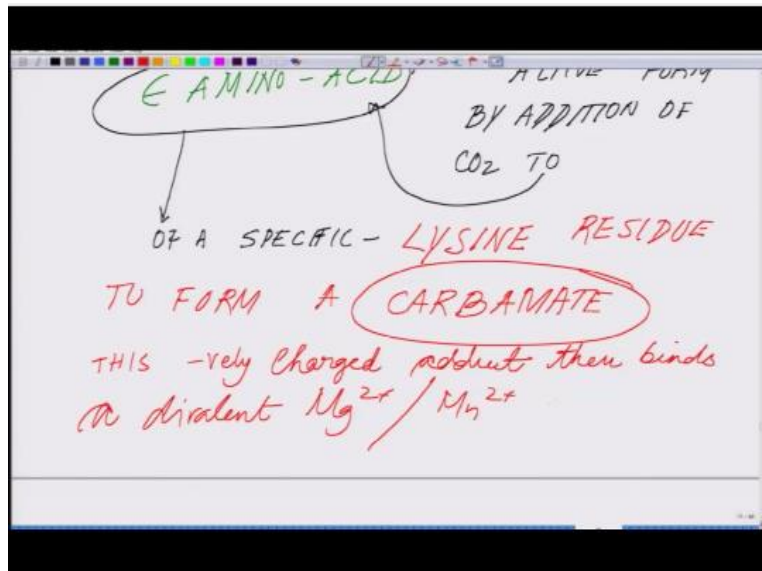 E AMINO-ACID
BY ADDITION OF
CO2 TO
OF A SPECIFIC- LYSINE RESIDUE
TO FORM A CARBAMATE
THIS -vely Charged adduct then binds
a divalent Mg2+ / Mn2+